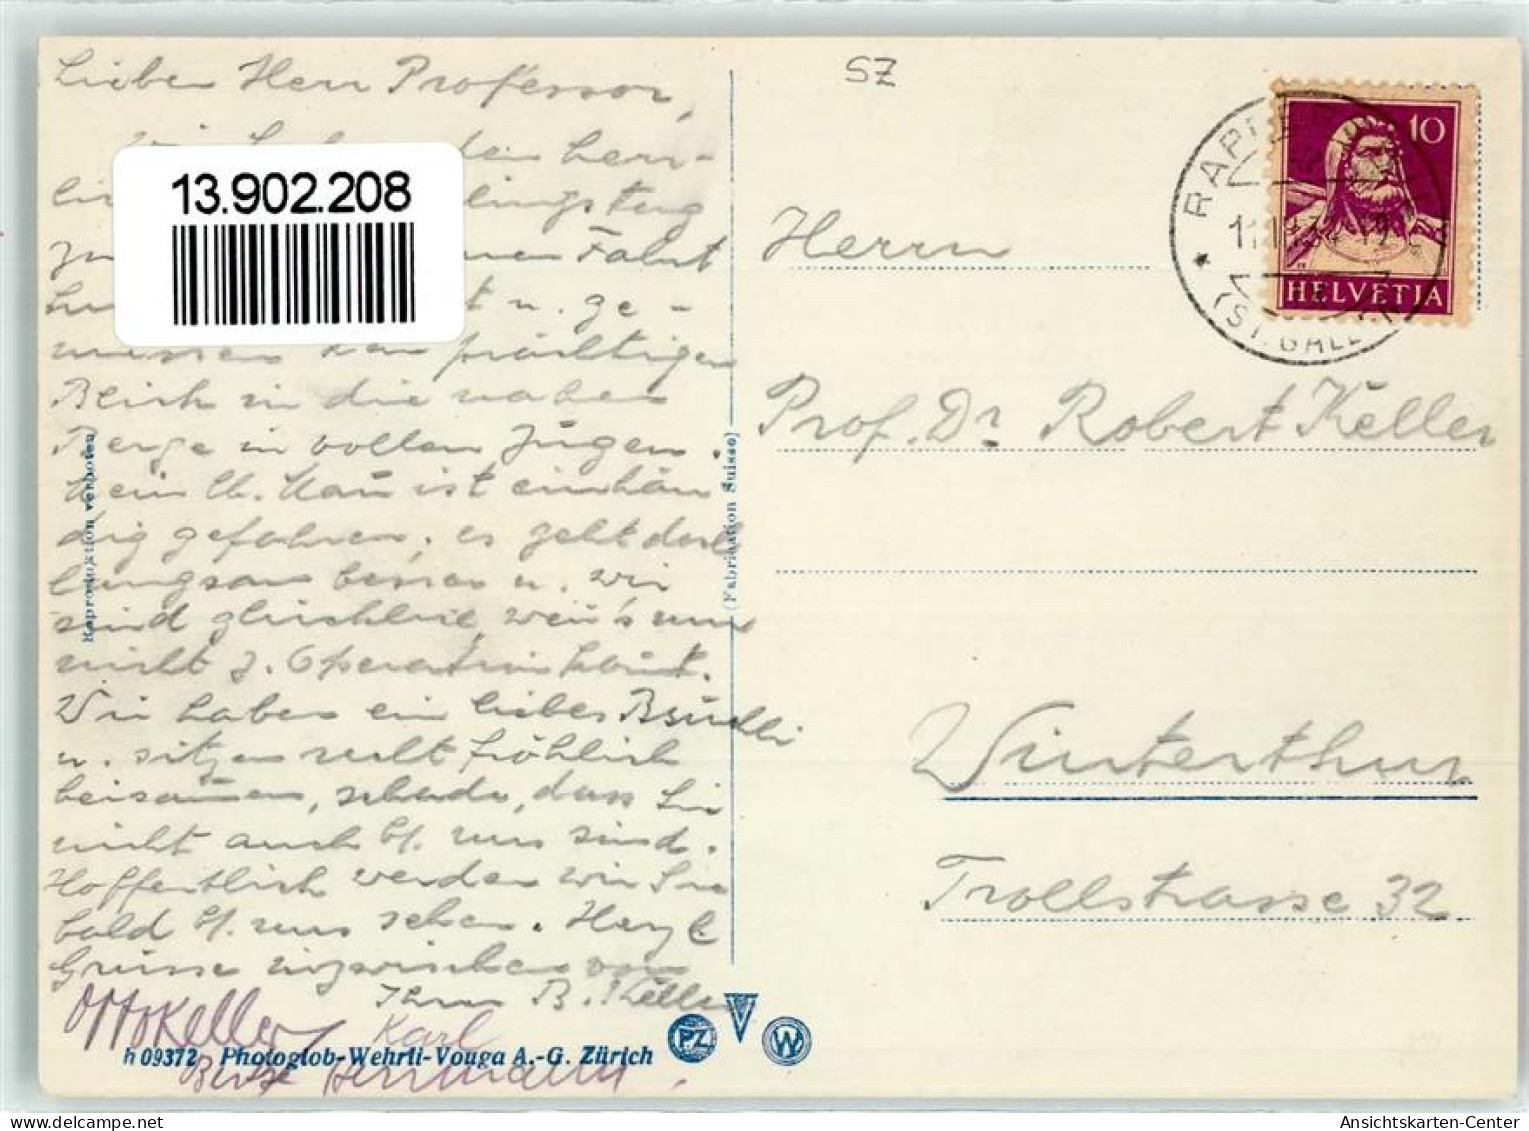 Lieber Herr Professor,
den herr-
lingstag
Fahrt
u. ge-
niessen den prächtigen
Blick in die nahen
Berge in vollen Zügen.
Mein lb. Mann ist
gefahren, es geht doch
langsam besser u. wir
sind glücklich, wenn's nur
nicht z. Operation kommt.
Wir haben ein liebes Bsüechli
u. sitzen recht fröhlich
beisammen, schade, dass Sie
nicht auch b/. uns sind.
Hoffentlich werden wir Sie
bald b/. uns sehen. Herzl.
Grüsse inzwischen von
Ihrer B. Keller
Otto Keller
Karl
Herrmann
13.902.208
Reproduktion verboten
(Fabrication Suisse)
h 09372 Photoglob-Wehrli-Vouga A.-G. Zürich
PZ
V
W
SZ
10
HELVETIA
RAPPE
(ST. GALLEN)
Herrn
Prof. Dr Robert Keller
Winterthur
Trollstrasse 32
Ansichtskarten-Center